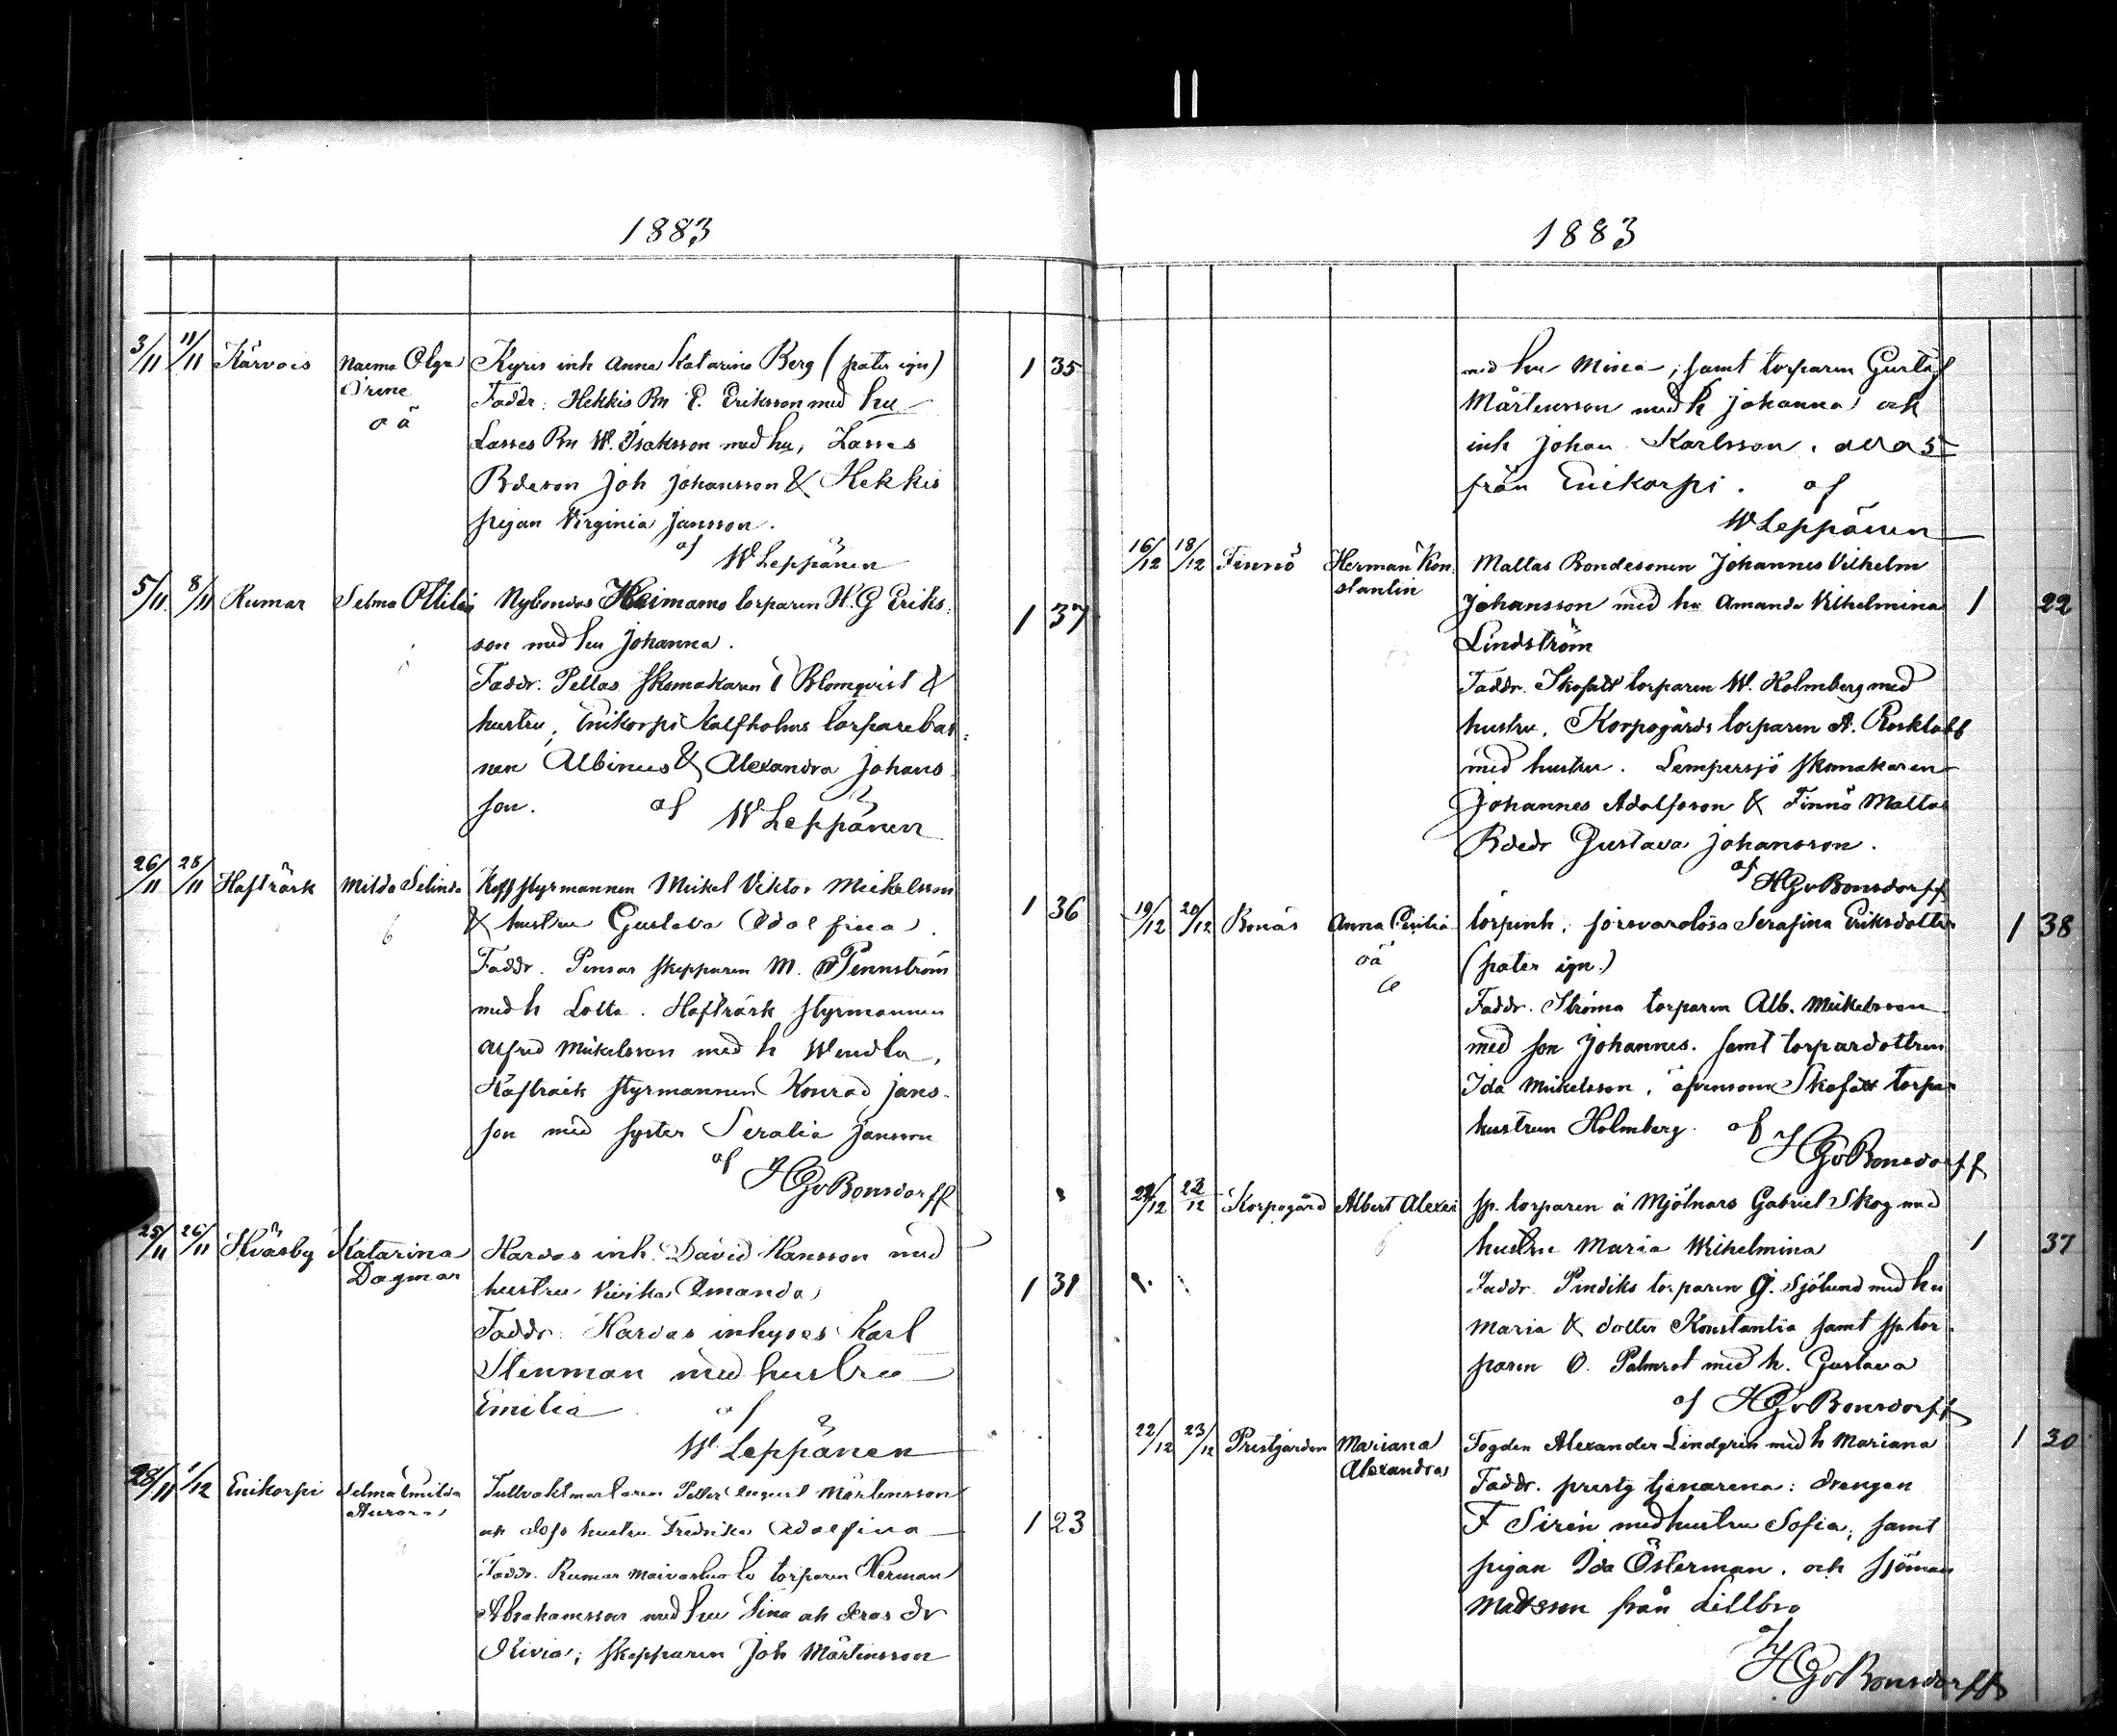 1883
3/11 11/11 Kärvois Naema Olga Kyris inh Anna Katarina Berg (pater ign) 1 35
Irene Faddr: Hekkis Bn E. Eriksson med hu
oä Lasses Bn W. Isaksson med hu, Lasses
Bdeson Joh Johansson & Hekkis
pigan Virginia Jansson.
af W Leppänen
5/11 8/11 Rumar Selma Ottilia Nybondas Heimamo torparen H. G Eriks-
son med hu Johanna. 1 37
Faddr. Pellas skomakaren Blomqvist &
hustru, Enikorpi Kalfholms torparebar-
nen Albinus & Alexandra Johans-
son. af W Leppänen
26/11 28/11 Hafträsk Milda Selinda Koff styrmannen Mickel Viktor Mickelsson
& hustru Gustava Adolfina. 1 36
6 Faddr. Pensar skepparen M. Pennström
med h Lotta. Hafträsk styrmannen
Alfred Mickelsson med h Wendla,
Hafträsk styrmannen Konrad Jans-
son med syster Seralia Jansson
af HGvBonsdorff
25/11 26/11 Hväsby Katarina Harvas inh. David Hansson med
Dagmar hustru Vivika Amanda 1 31
Faddr. Harvas inhyses Karl
Stenman med hustru
Emilia af
W Leppänen
28/11 1/12 Enikorpi Selma Emilia Tullvaktmästaren Petter August Mårtensson
Aurora och dess hustru Fredrika Adolfina 1 23
Faddr. Rumar torparen Herman
Abrahamsson med hu Lina och deras dr
Olivia; skepparen Joh Mårtensson
1883
med hu Mina, samt torparen Gustaf
Mårtensson med h Johanna och
inh Johan Karlsson. allas
från Enikorpi. af
W Leppänen
16/12 18/12 Finnö Herman Kon- Mattas Bondesonen Johannes Vilhelm
stantin Johansson med hu Amanda Vilhelmina 1 22
Lindström
Faddr. Skofatt torparen W. Holmberg med
hustru, Korpogårds torparen A. Rosklabb
med hustru. Lempersjö skomakaren
Johannes Adolfsson & Finnö Mattas
Bdedr Gustava Johansson.
af HGvBonsdorff
19/12 20/12 Bonäs Anna Cecilia torpinh. försvarslösa Serafina Eriksdotter 1 38
oä (pater ign.)
6 Faddr. Ströma torparen Alb. Mickelsson
med son Johannes. samt torpardottren
Ida Mickelsson, äfvensom Skofatt torpar
hustrun Holmberg. af
HGvBonsdorff
22/12 23/12 Korpogård Albert Alexis sp. torparen å Mjölnars Gabriel Skog med
hustru Maria Wilhelmina 1 37
Faddr. Pindiks torparen G. Sjölund med hu
Maria & dotter Konstantia samt sp. tor-
paren O. Palmrot med h. Gustava
af HGvBonsdorff
22/12 23/12 Prestgården Mariana Fogden Alexander Lindgren med h Mariana 1 30
Alexandra Faddr. prestg tjenarena: drengen
F Sirén med hustru Sofia, samt
pigan Ida Österman. och sjöman
Mattsson från Lillbro
af HGvBonsdorff